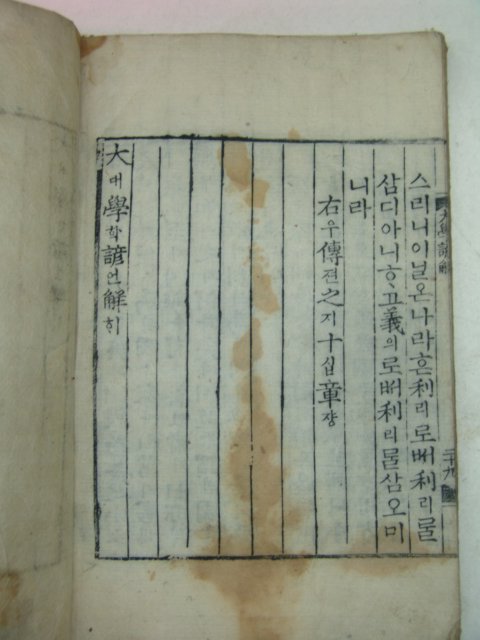 大學諺解
二十九
스리니이닐온나라흔利리로ᄡᅥ利리를
삼디아니ᄒᆞ고義의로ᄡᅥ利리를삼오미
니라
右우傳젼之지十십章쟝
大대學학諺언解ᄒᆡ